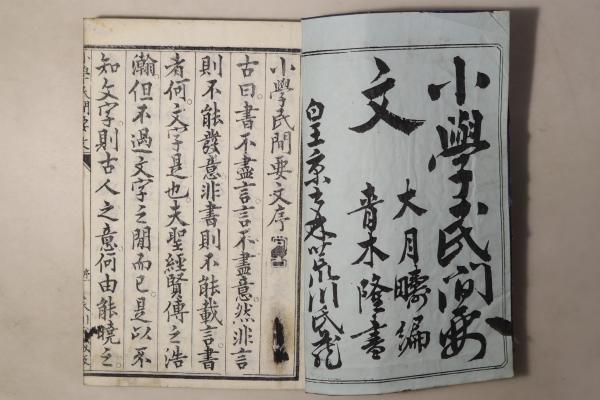 小學民間要
文
大月疇編
青木隆書
皇京書林菱川氏蔵
小學民間要文序
古曰書不盡言言不盡意然非言
則不能發意非書則不能載言書
者何文字是也夫聖經賢傳之浩
瀚但不過文字之間而已是以不
知文字則古人之意何由能曉之
小學民間要文
序